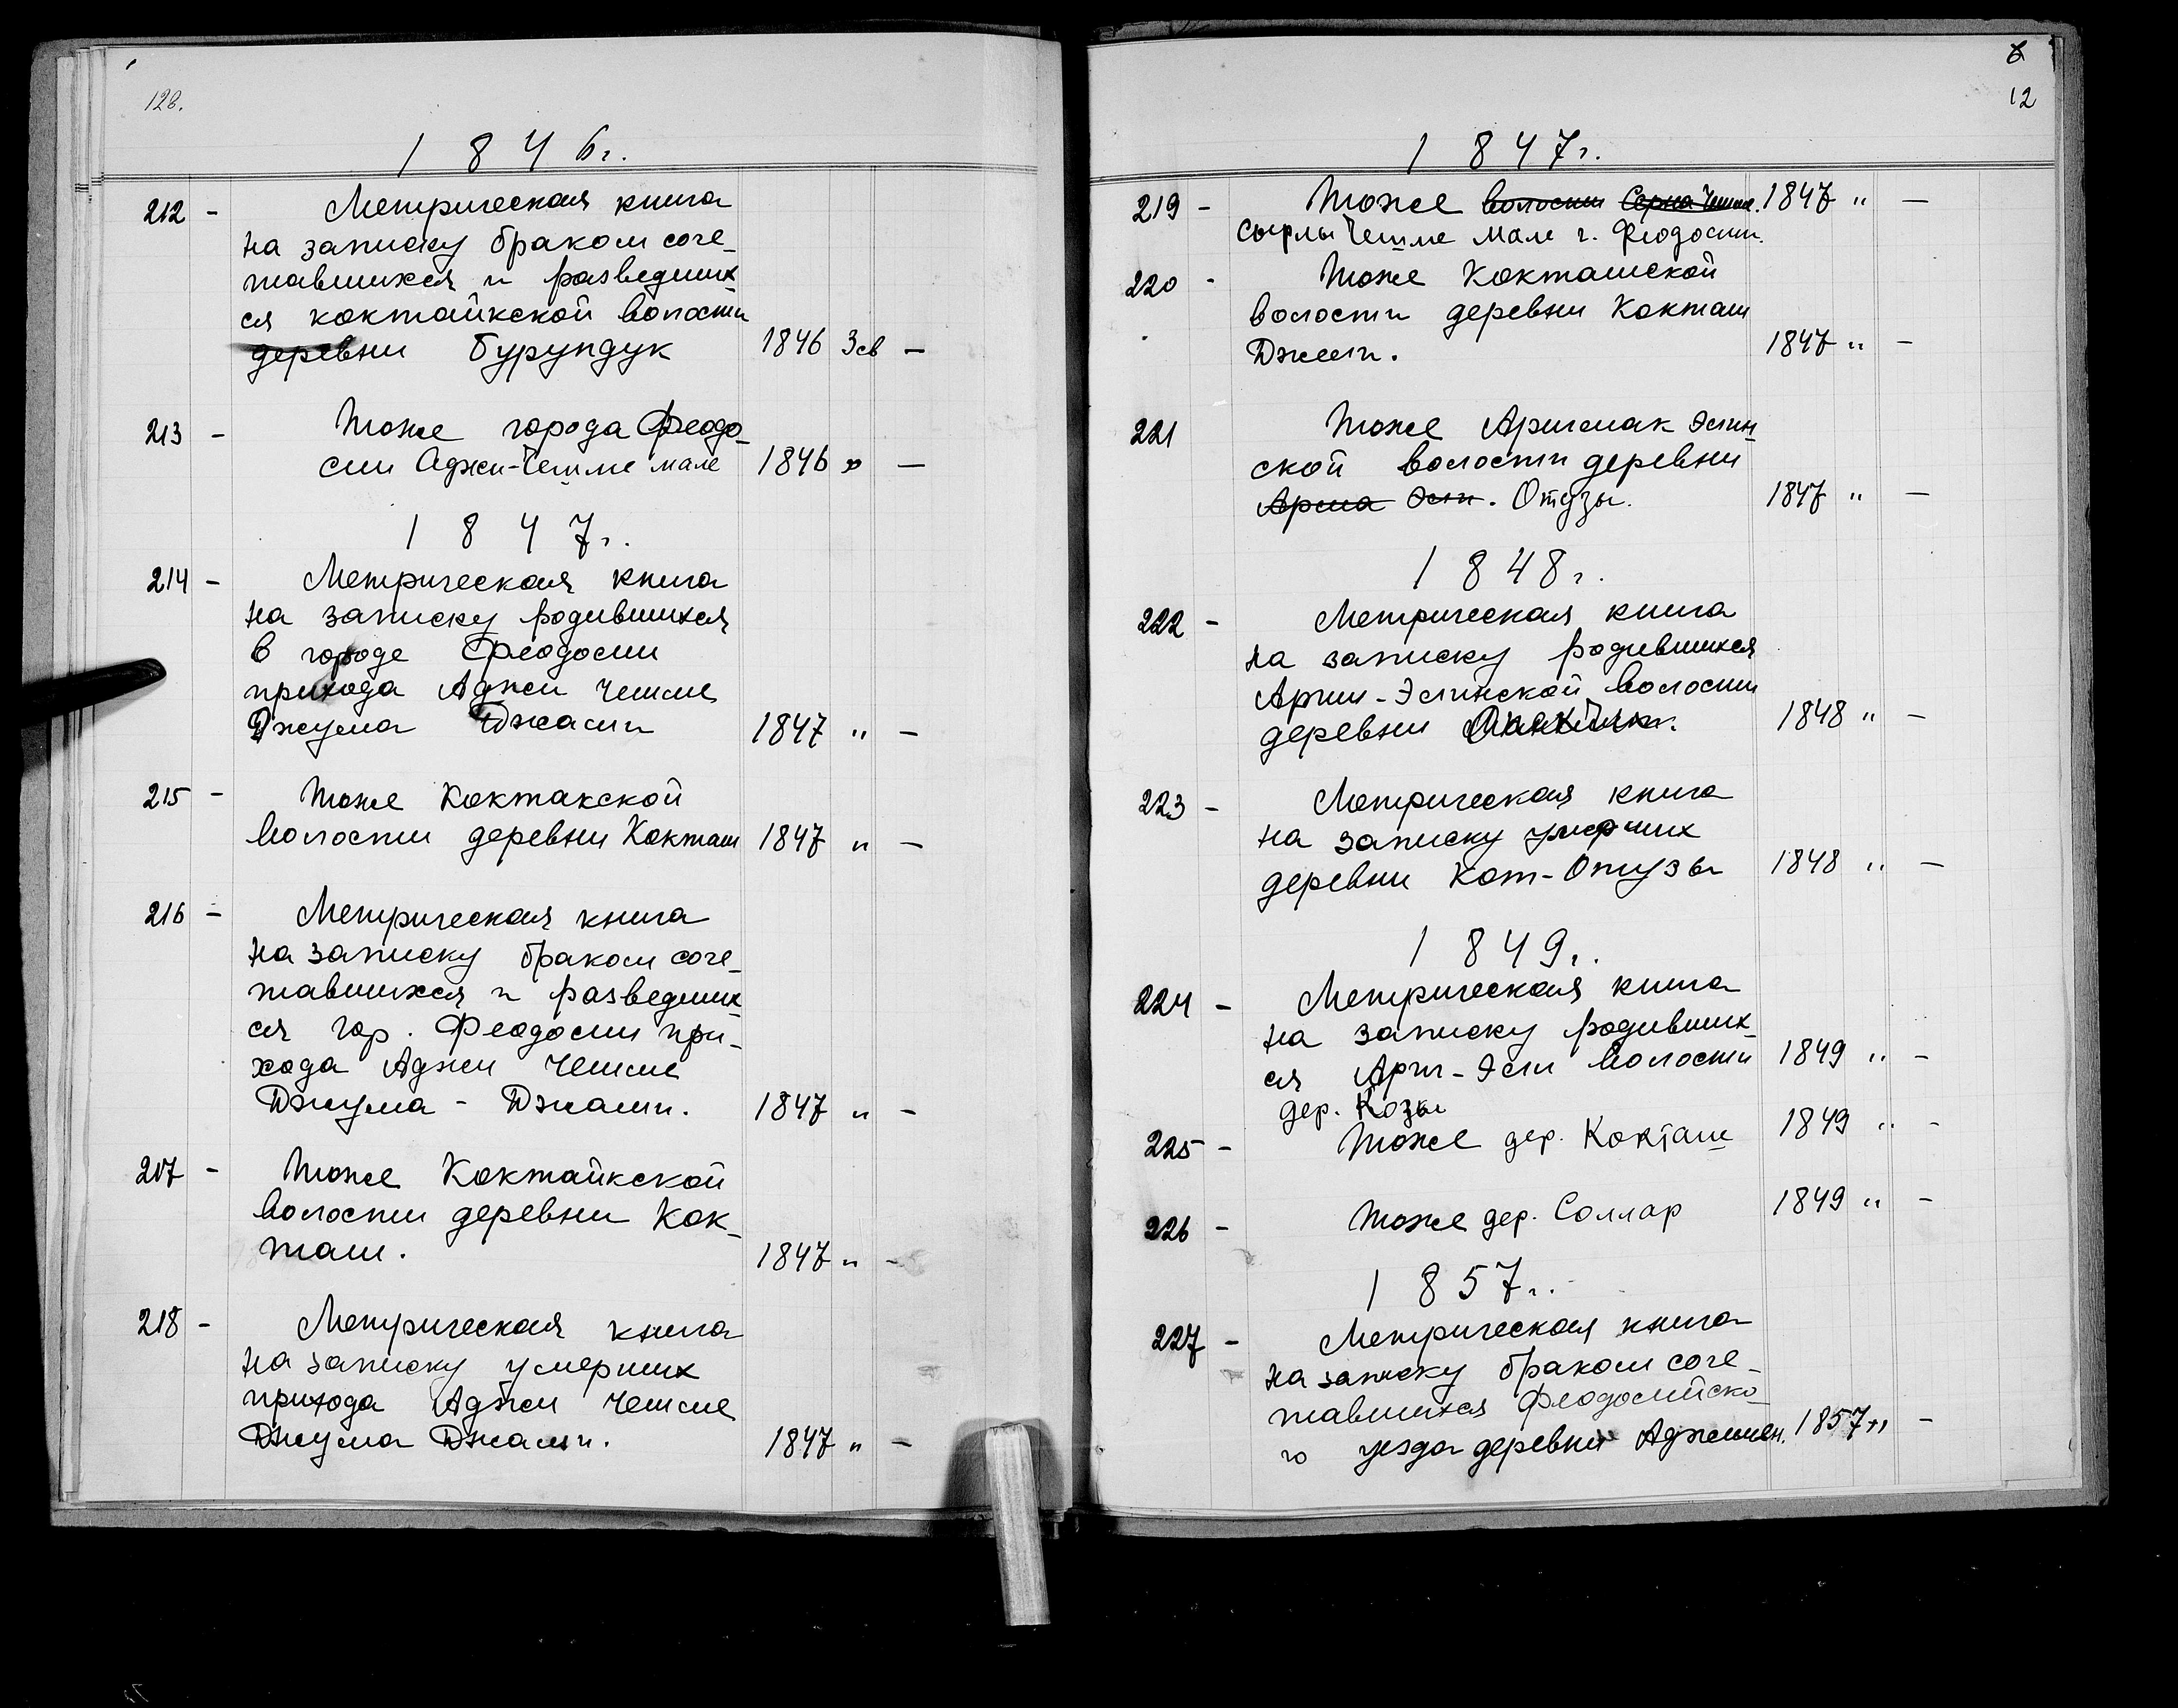 128.
1846г.
212 - Метрическая книга
на записку браком соче-
тавшихся и разведших
ся коктайкской волости
деревни Бурундук 1846 Зсв —
213 - Тоже города Феодо-
сии Аджи-Чешме мале 1846 " —
1847г.
214 - Метрическая книга
на записку родившихся
в городе Феодосии
прихода Аджи чешме
Джума Джами 1847 " —
215 - Тоже Коктакской
волости деревни Кокташ 1847 " —
216 - Метрическая книга
на записку браком соче-
тавшихся и разведших-
ся гор. Феодосии при-
хода Аджи Чешме
Джума - Джами. 1847 " —
217 - Тоже Коктайкской
волости деревни Кок-
таш. 1847 " -
218 - Метрическая книга
на записку умерших
прихода Аджи чешме
Джума Джами. 1847 " —
12
1847г.
219 - Тоже волости 1847 " —
Сырлы Чешме мале г. Феодосии.
220 - Тоже Кокташской
волости деревни Кокташ
Джами. 1847 " —
221 Тоже Аргинак Эслин-
ской волости деревни
Отузы. 1847 " —
1848г.
222 - Метрическая книга
на записку родившихся
Аргин-Эслинской волости
деревни 1848 " —
223 - Метрическая книга
на записку умерших
деревни Кот-Отузы 1848 " —
1849г.
224 - Метрическая книга
на записку родивших-
ся Арги-Эсли волости 1849 " -
дер. Козы
225 - Тоже дер. Кокташ 1849 " -
226 - Тоже дер. Соллар 1849 " -
1857г.
227 - Метрическая книга
на записку браком соче-
тавшихся Феодосийско
го уезда деревни 1857 " -